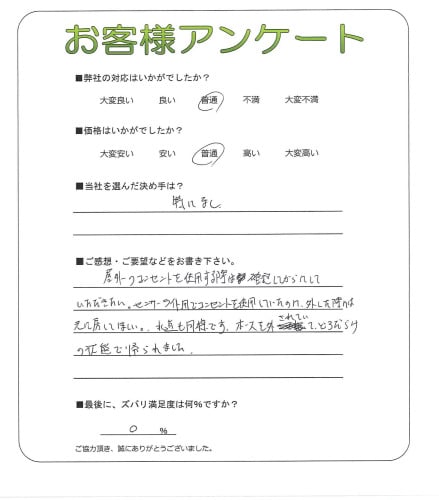 お客様アンケート
■弊社の対応はいかがでしたか？
大変良い 良い 普通 不満 大変不満
■価格はいかがでしたか？
大変安い 安い 普通 高い 大変高い
■当社を選んだ決め手は？
特になし
■ご感想・ご要望などをお書き下さい。
屋外のコンセントを使用する際は確認してからにして
いただきたい。センサーライト用でコンセントを使用していたのに、外した際は
元に戻してほしい。水道も同様です。ホースを外されていて、どろだらけ
の状態で帰られました。
■最後に、ズバリ満足度は何％ですか？
0 ％
ご協力頂き、誠にありがとうございました。